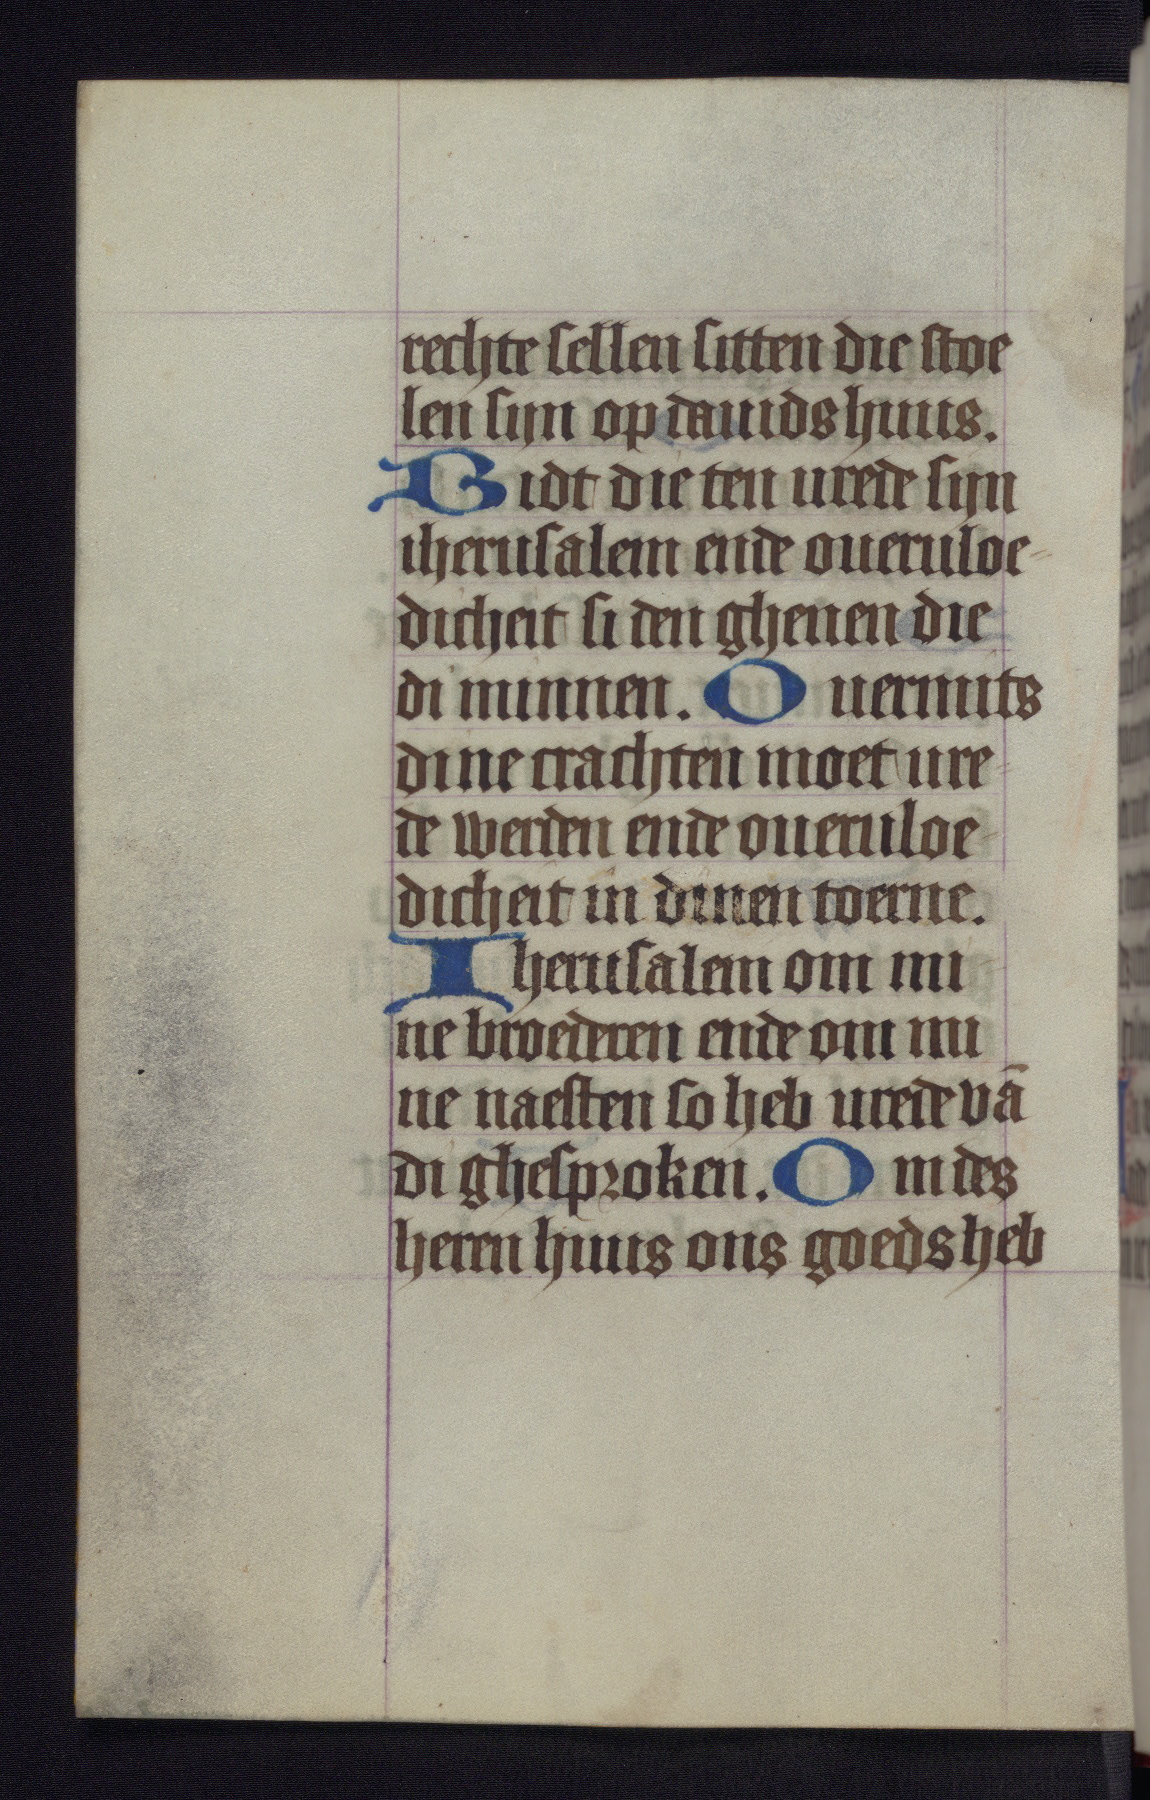 rechte sellen sitten die stoe
len sijn op dauids huus.
Bidt die ten urede sijn
iherusalem ende oueruloe-
dicheit si den ghenen die
di minnen. Ouermits
dine crachten moet ure-
de werden ende oueruloe-
dicheit in dinen toerne.
Iherusalem om mi
ne broederen ende om mi
ne naesten so heb urede vā
di ghesproken. Om des
heren huus ons goeds heb